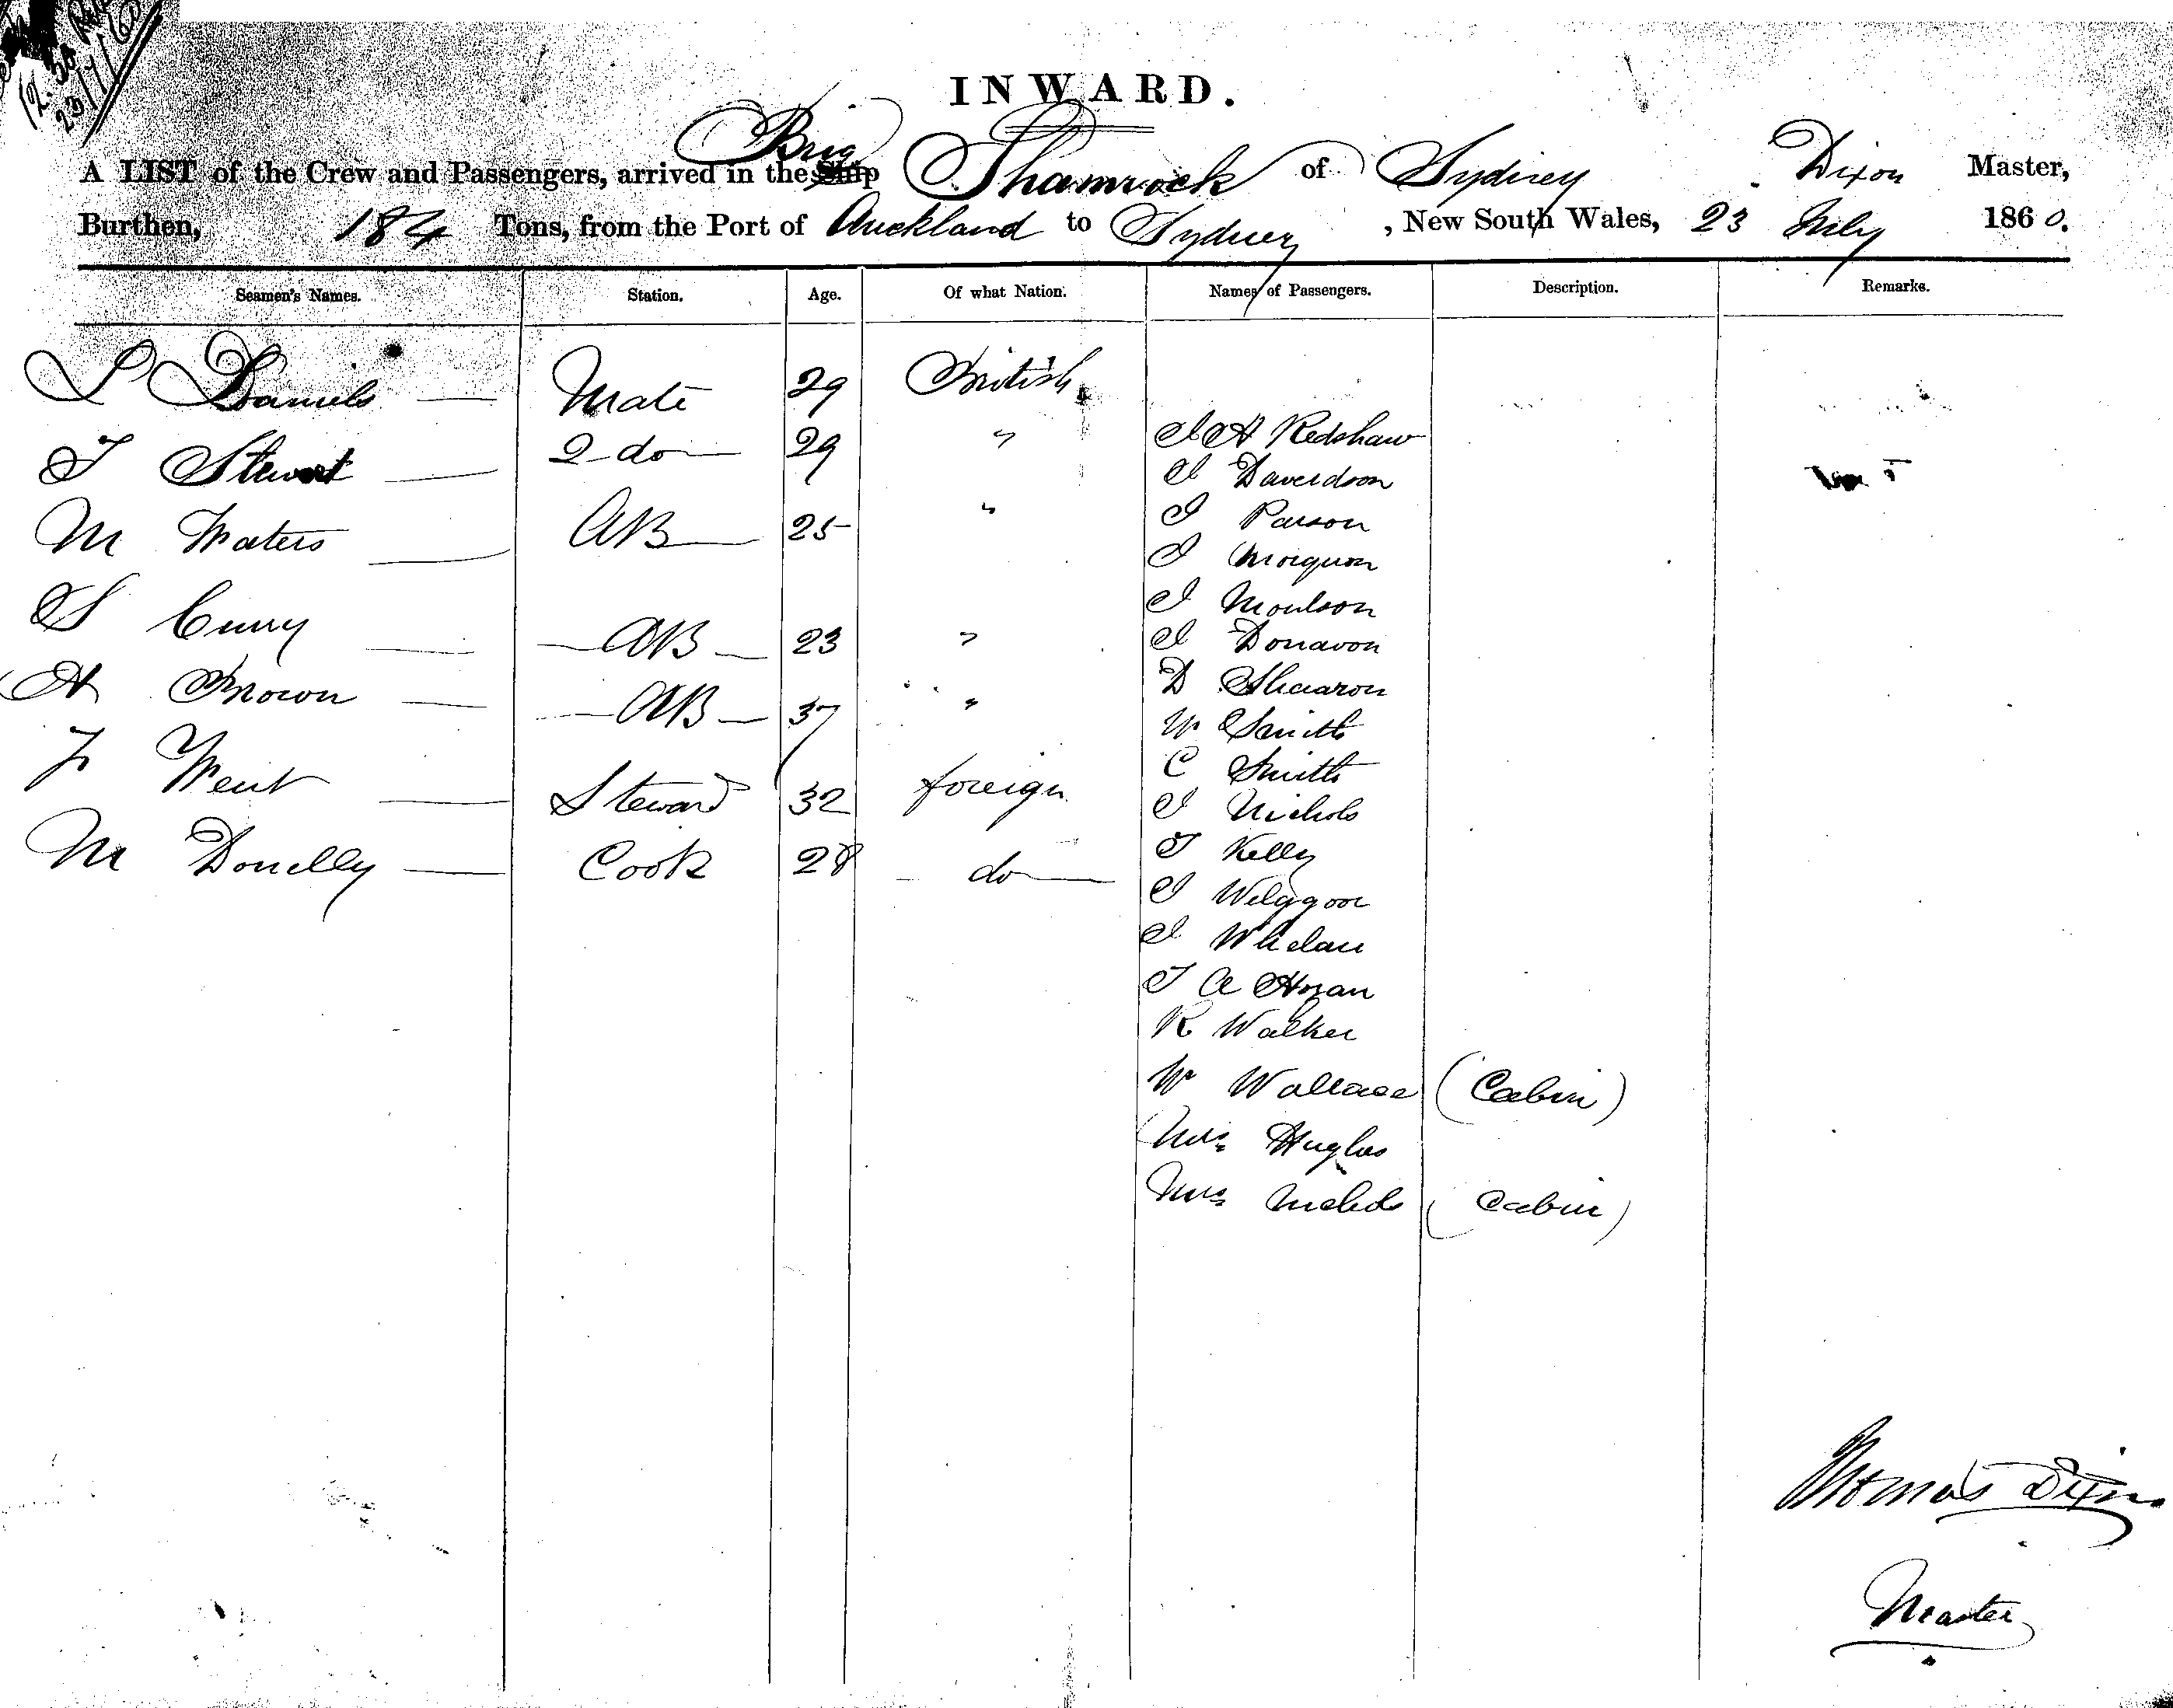 12.30
23/7/60
INWARD.
A LIST of the Crew and Passengers, arrived in the Ship Brig Shamrock of Sydney Dixon Master,
Burthen, 184 Tons, from the Port of Auckland to Sydney, New South Wales, 23 July 1860.
Seamen's Names. Station. Age. Of what Nation. Names of Passengers. Description. Remarks.
Daniels Mate 29 British
J H Redshaw
T Stewart 2 do 29 "
J Daverdson
M Waters AB 25 "
J Parson
J
J Moulson
S Curry AB 23 "
J Donavon
D
H Brown AB 37 "
W Smith
C Smith
Went Steward 32 foreign
J Nichols
T Kelly
M Donelly Cook 28 do
J
J Whelan
T A Horan
R Walker
W Wallace (Cabin)
Mrs Hughes
Mrs Nichols (Cabin)
Thomas Dixon
Master